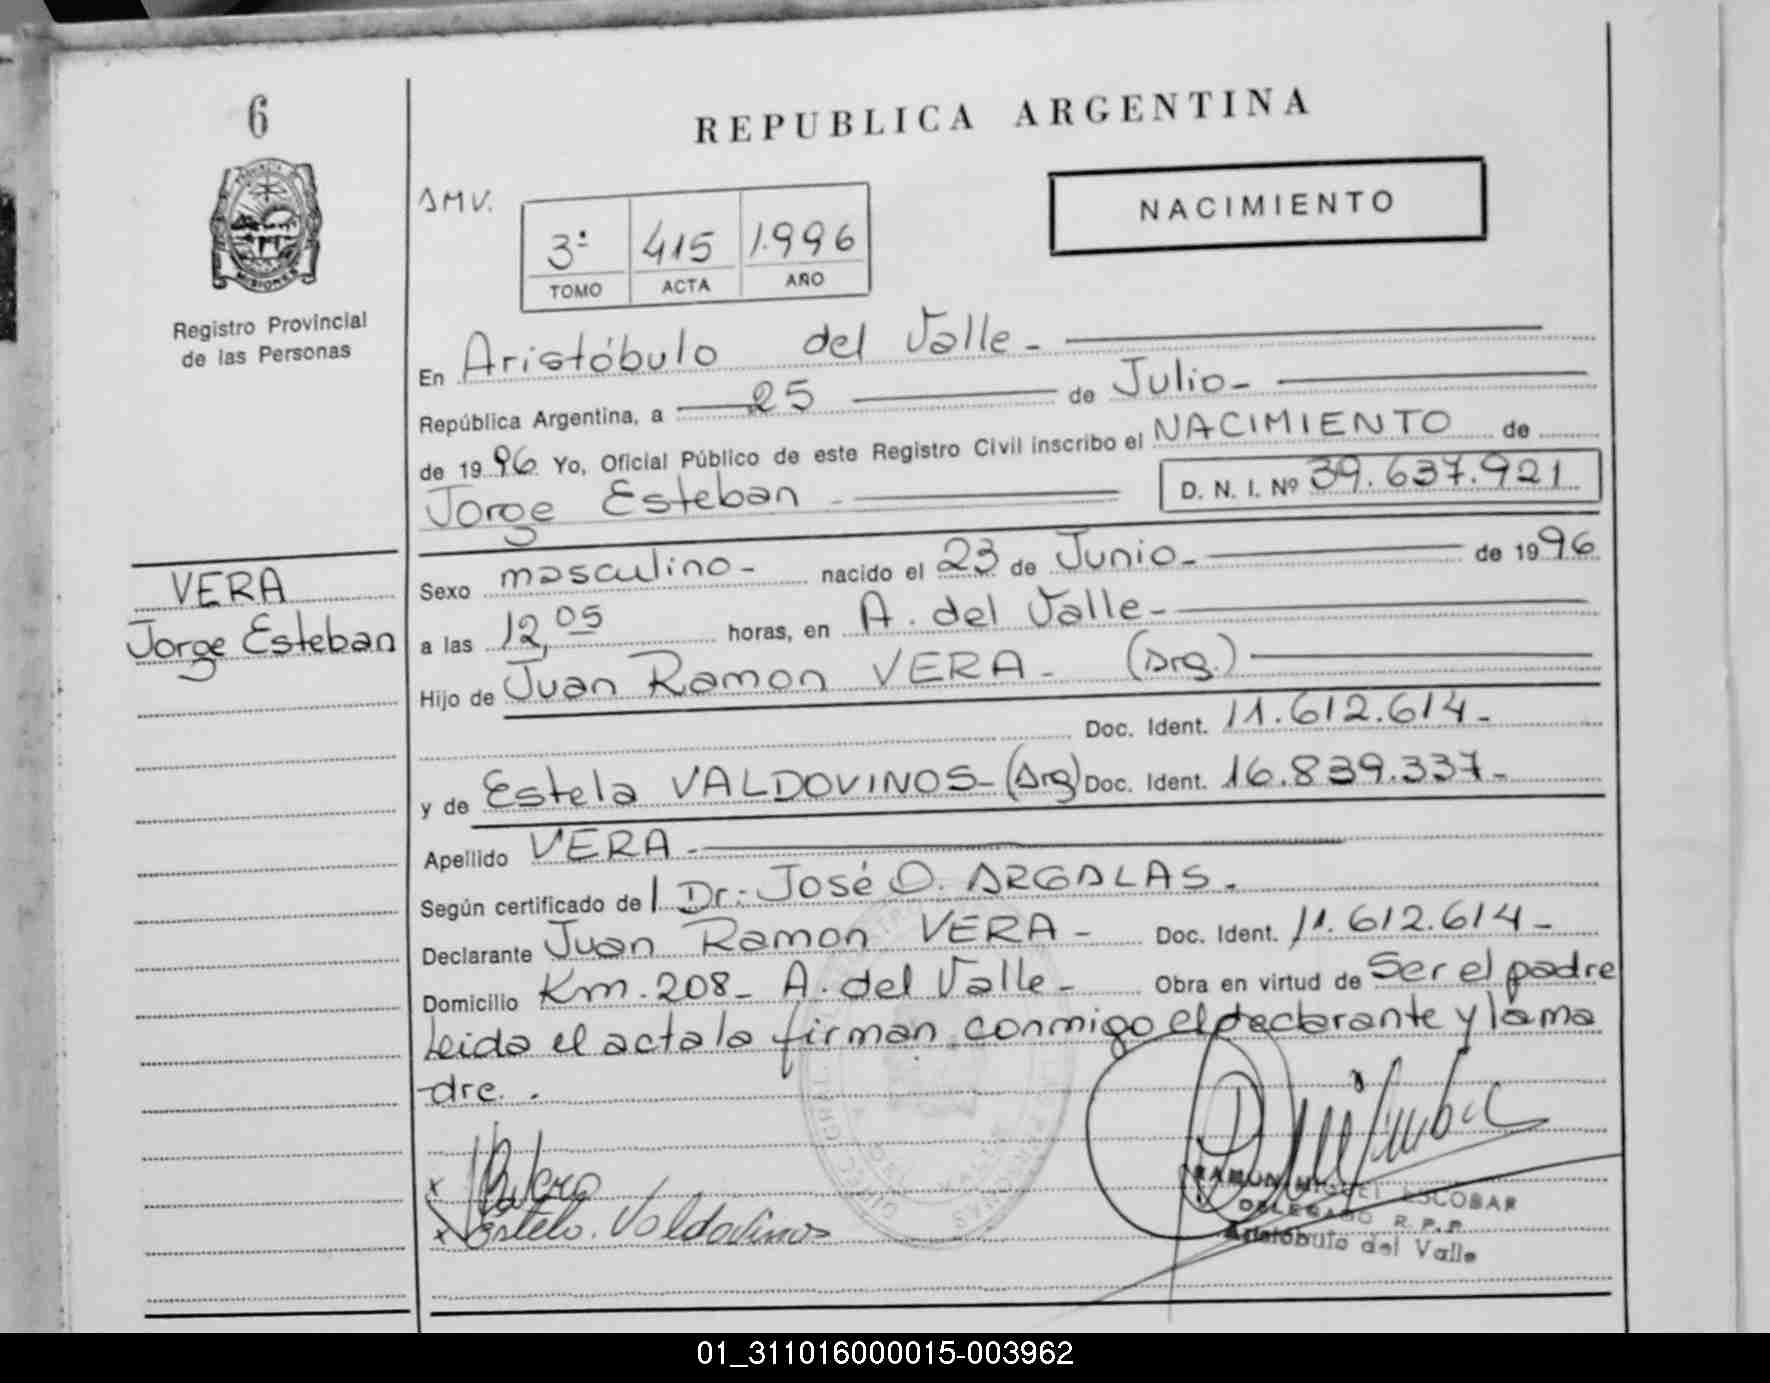 6
REPUBLICA ARGENTINA
PROVINCIA
MISIONES
Registro Provincial
de las Personas
AMV.
3º 415 1.996
TOMO ACTA AÑO
NACIMIENTO
En Aristóbulo del Valle-
República Argentina, a 25 de Julio-
de 1996 Yo, Oficial Público de este Registro Civil inscribo el NACIMIENTO de
Jorge Esteban - D. N. I. Nº 39.637.921
VERA
Jorge Esteban
Sexo masculino- nacido el 23 de Junio- de 1996
a las 12,05 horas, en A. del Valle-
Hijo de Juan Ramon VERA- (Arg.)
Doc. Ident. 11.612.614-
y de Estela VALDOVINOS-(Arg) Doc. Ident. 16.839.337-
Apellido VERA-
Según certificado de Dr.: José O. ARGALAS.
Declarante Juan Ramon VERA- Doc. Ident. 11.612.614-
Domicilio Km.208- A. del Valle- Obra en virtud de Ser el padre
Leida el acta la firman conmigo el declarante y la ma
dre.
x
x Estela. Valdovinos
RAMON MIGUEL ESCOBAR
DELEGADO R. P. P.
Aristóbulo del Valle
01_311016000015-003962